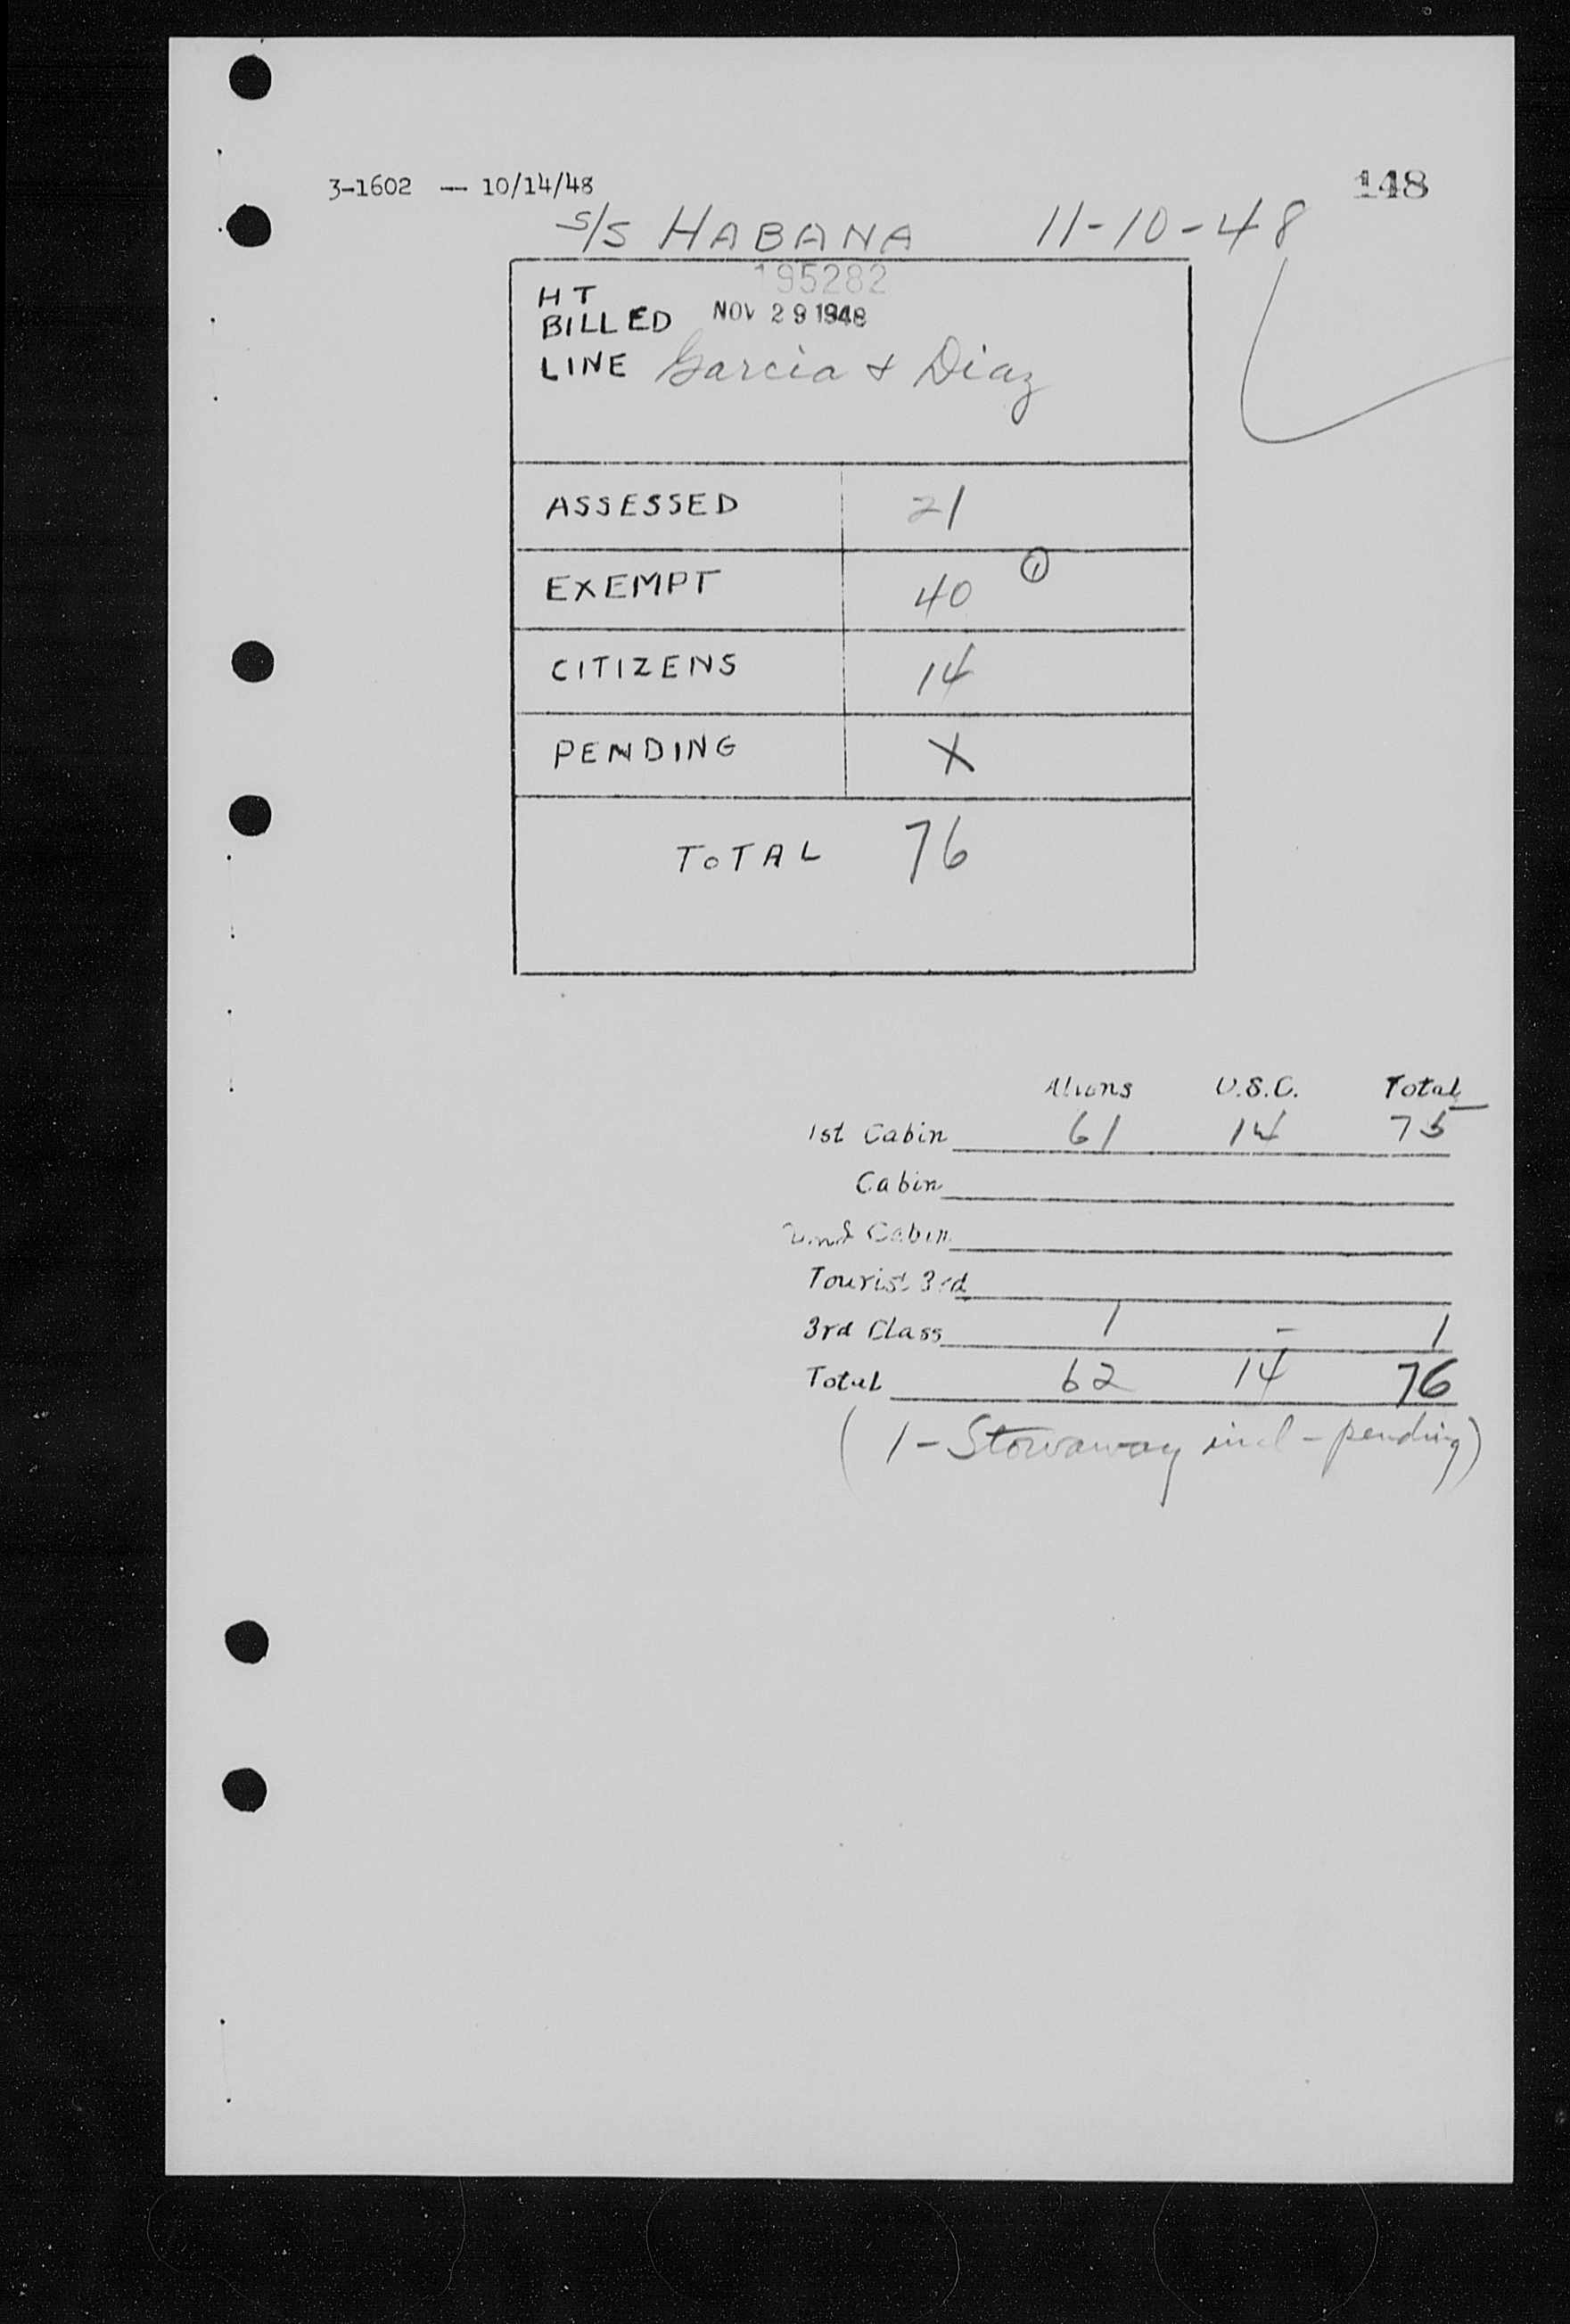 3-1602 — 10/14/48
148
S/S HABANA 11-10-48
195282
HT
BILLED NOV 29 1948
LINE Garcia & Diaz
ASSESSED 21
EXEMPT 40 ①
CITIZENS 14
PENDING X
TOTAL 76
Aliens U.S.C. Total
1st Cabin 61 14 75
Cabin
2nd Cabin
Tourist 3rd
3rd Class 1 - 1
Total 62 14 76
(1 - Stowaway incl - pending)